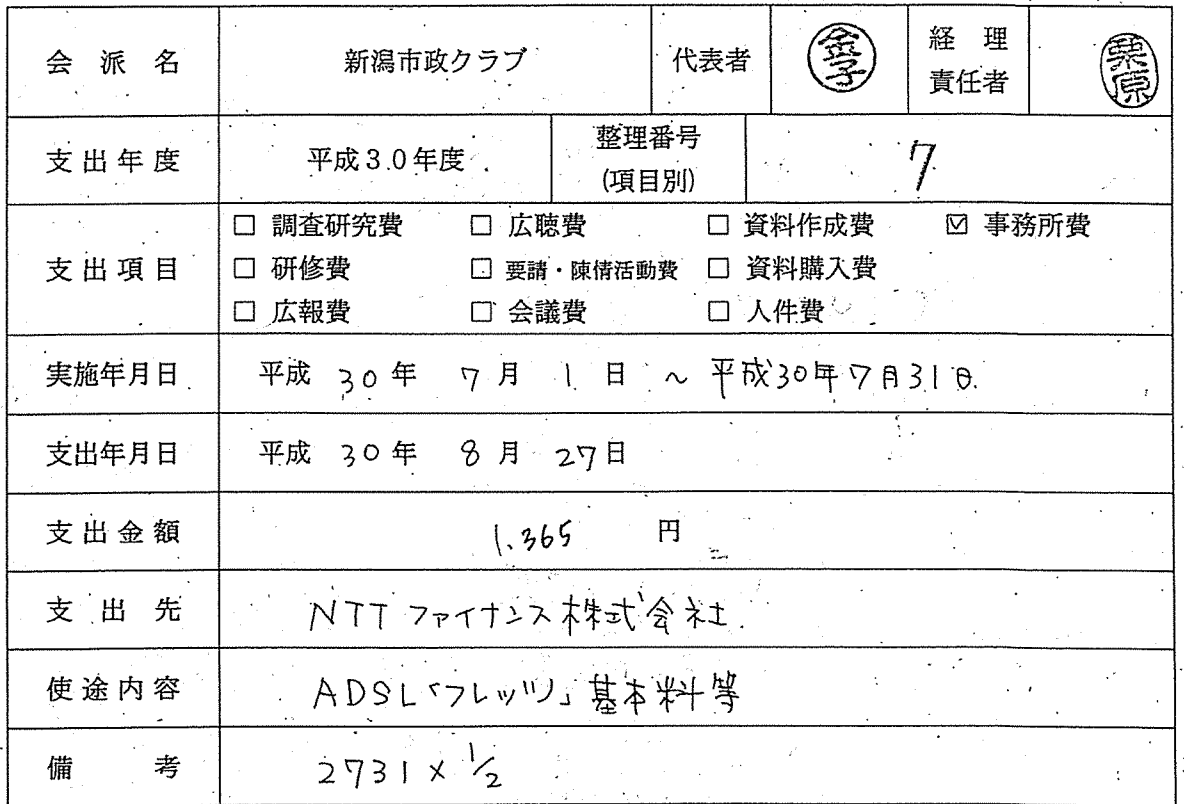 会派名 新潟市政クラブ 代表者 金子 経理責任者 栗原
支出年度 平成30年度 整理番号(項目別) 7
支出項目
□ 調査研究費 □ 広聴費 □ 資料作成費 ☑ 事務所費
□ 研修費 □ 要請・陳情活動費 □ 資料購入費
□ 広報費 □ 会議費 □ 人件費
実施年月日 平成 30 年 7 月 1 日 ~ 平成30年7月31日
支出年月日 平成 30 年 8 月 27 日
支出金額 1,365 円
支出先 NTTファイナンス株式会社
使途内容 ADSL「フレッツ」基本料等
備考 2731 × 1/2